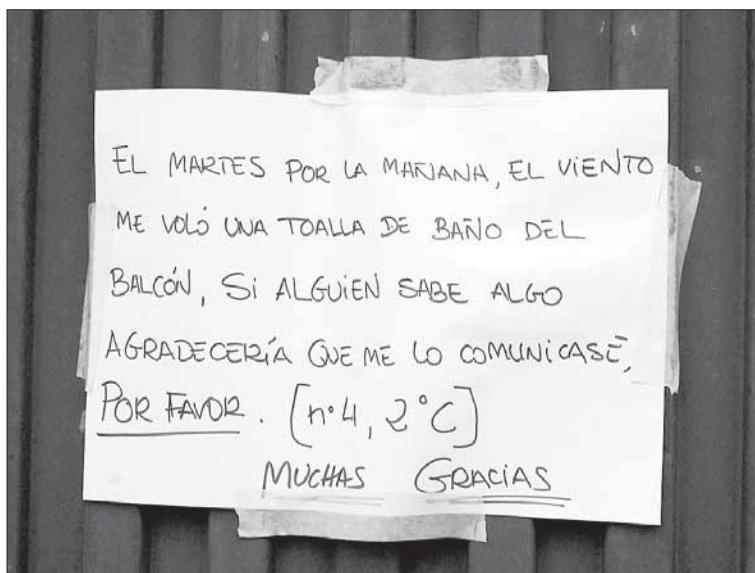 EL MARTES POR LA MAÑANA, EL VIENTO
ME VOLÓ UNA TOALLA DE BAÑO DEL
BALCÓN, SI ALGUIEN SABE ALGO
AGRADECERÍA QUE ME LO COMUNICASE,
POR FAVOR. [nº4, 2ºC]
MUCHAS GRACIAS